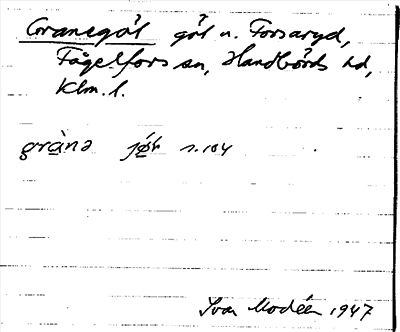 Granegöl göl n. Forsaryd,
Fågelfors sn, Handbörds hd,
Klm. l.
grànə jö́ɫ s. 104
Ivar Modéer 1947